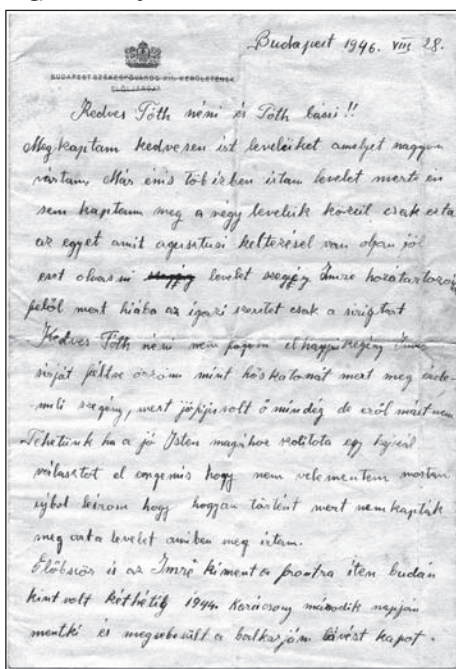 Budapest 1946. VIII 28.
BUDAPEST SZÉKESFŐVÁROS XIII. KERÜLETÉNEK
ELÖLJÁRÓJA
Kedves Tóth néni és Tóth bácsi!!
Megkaptam kedvesen írt levelüket amelyet nagyon
vártam, Már énis töb ízben írtam levelet merts én
sem kaptam meg a négy levelük közül csak ezta
az egyet amit agusztusi keltezésel van olyan jól
ezt olvasni levelet szegény Imre hozátartozói
től mert hiába az igazi szeretet csak a sirigtart
Kedves Tóth néni nem fogom elhagyni szegény Imre
sirját féltve őrzöm mint hőskatonát mert meg érde-
mli szegény, mert jó volt ő mindég de eről mástnem
Tehetünk ha a jó Isten magához szolitota egy
választot el engemis hogy nem velementem mostan
ujbol leírom hogy hogyan történt mert nemkapták
meg azta levelet amiben meg írtam.
Előbször is az Imre kiment a frontra iten budán
kint volt kéthétig 1944. Karácsony második napján
mentki és megsebesült a balkarján lövést kapot.